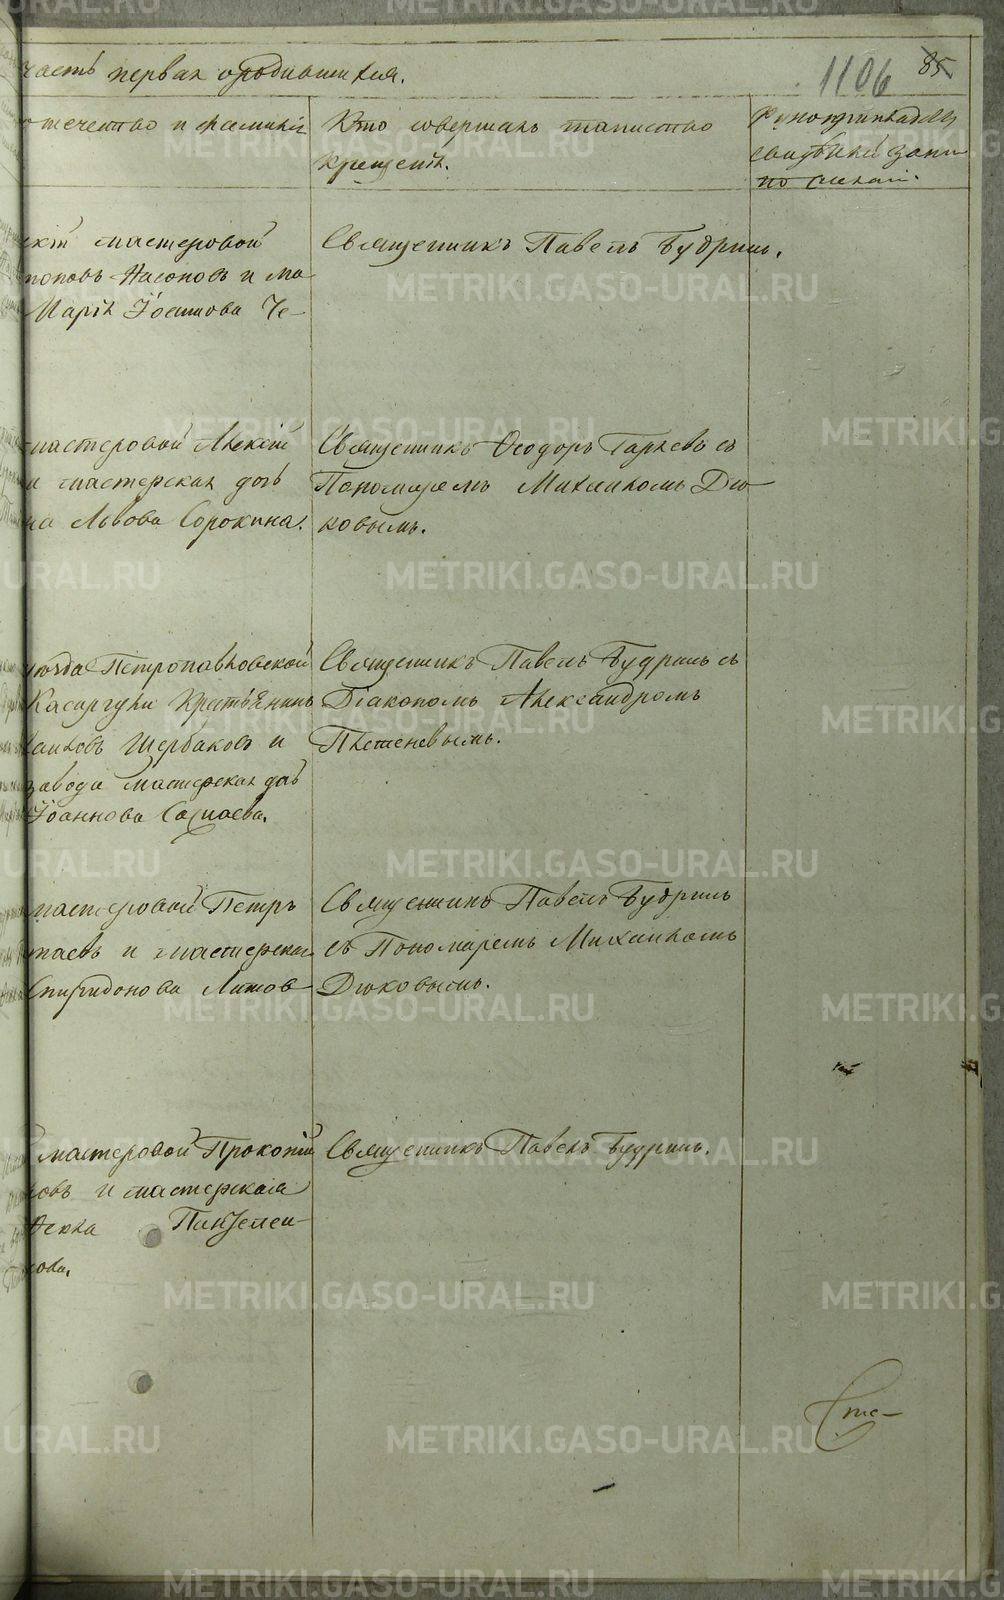 часть первая о родившихся.
1106 85
отечество и фамилія
Кто совершалъ таинство
крещенія.
Рукоприкладство
свидѣтелей записи
по желанію.
мастеровой
поповъ Насоновъ и ма-
Марія Іосипова Че-
Священникъ Павелъ Будринъ.
мастеровой Алексій
и мастерская дочь
на Львова Сорокина.
Священникъ Ѳеодоръ Гаряевъ съ
Пономаремъ Михаиломъ Дю-
ковымъ.
уѣзда Петропавловской
Касаргуки Крестьянинъ
Щербаковъ и
завода мастерская дочь
Іоаннова
Священникъ Павелъ Будринъ съ
Діакономъ Александромъ
Плетеневымъ.
мастеровой Петръ
таевъ и мастерская
Спиридонова Литов-
Священникъ Павелъ Будринъ
съ Пономаремъ Михаиломъ
Дюковымъ.
мастеровой Прокопій
ковъ и мастерская
Ѳекла Пантелеи-
ова.
Священникъ Павелъ Будринъ.
METRIKI.GASO-URAL.RU